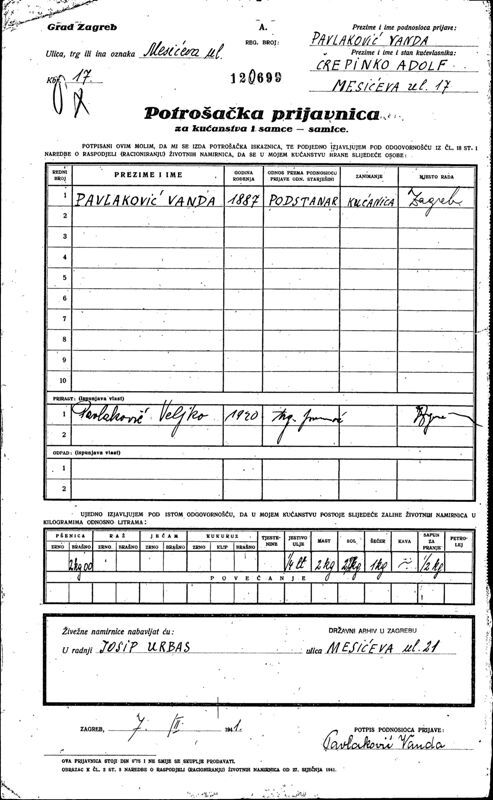 Grad Zagreb
A.
Prezime i ime podnosioca prijave:
PAVLAKOVIĆ VANDA
Ulica, trg ili ina oznaka Mesićeva ul.
REG. BROJ:
Prezime i ime i stan kućevlasnika:
ČREPINKO ADOLF
Kbr. 17
120699
MESIĆEVA ul. 17
Potrošačka prijavnica
za kućanstva i samce — samice.
POTPISANI OVIM MOLIM, DA MI SE IZDA POTROŠAČKA ISKAZNICA, TE PODJEDNO IZJAVLJUJEM POD ODGOVORNOŠĆU IZ ČL. 18 ST. 1
NAREDBE O RASPODJELI (RACIONIRANJU) ŽIVOTNIH NAMIRNICA, DA SE U MOJEM KUĆANSTVU HRANE SLIJEDEĆE OSOBE:
REDNI BROJ
PREZIME I IME
GODINA ROĐENJA
ODNOS PREMA PODNOSIOCU PRIJAVE ODN. STARJEŠINI
ZANIMANJE
MJESTO RADA
1 PAVLAKOVIĆ VANDA 1887 PODSTANAR KUĆANICA Zagreb
2
3
4
5
6
7
8
9
10
PRIRAST: (ispunjava vlast)
1 Pavlaković Veljko 1920
2
OTPAD: (ispunjava vlast)
1
2
UJEDNO IZJAVLJUJEM POD ISTOM ODGOVORNOŠĆU, DA U MOJEM KUĆANSTVU POSTOJE SLIJEDEĆE ZALIHE ŽIVOTNIH NAMIRNICA U
KILOGRAMIMA ODNOSNO LITRAMA:
PŠENICA RAŽ JEČAM KUKURUZ TJESTENINE JESTIVO ULJE MAST SOL ŠEĆER KAVA SAPUN ZA PRANJE PETROLEJ
ZRNO BRAŠNO ZRNO BRAŠNO ZRNO BRAŠNO ZRNO KLIP BRAŠNO
2 kg 1/4 lt 2 kg 1 kg 1/2 kg
POVEĆANJE
Živežne namirnice nabavljat ću:
DRŽAVNI ARHIV U ZAGREBU
U radnji JOSIP URBAS ulica MESIĆEVA ul. 21
ZAGREB, 7 II 1941.
POTPIS PODNOSIOCA PRIJAVE:
Pavlaković Vanda
OVA PRIJAVNICA STOJI DIN 0'75 I NE SMIJE SE SKUPLJE PRODAVATI.
OBRAZAC K ČL. 2 ST. 2 NAREDBE O RASPODJELI (RACIONIRANJU) ŽIVOTNIH NAMIRNICA OD 27. SIJEČNJA 1941.